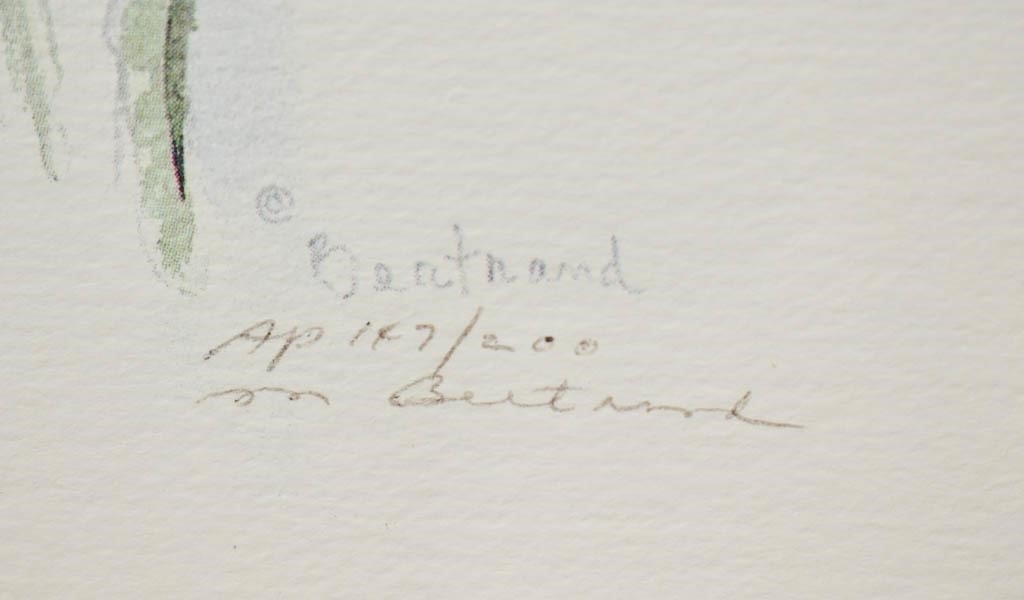 ©
Bertrand
AP 147/200
m Bertrand